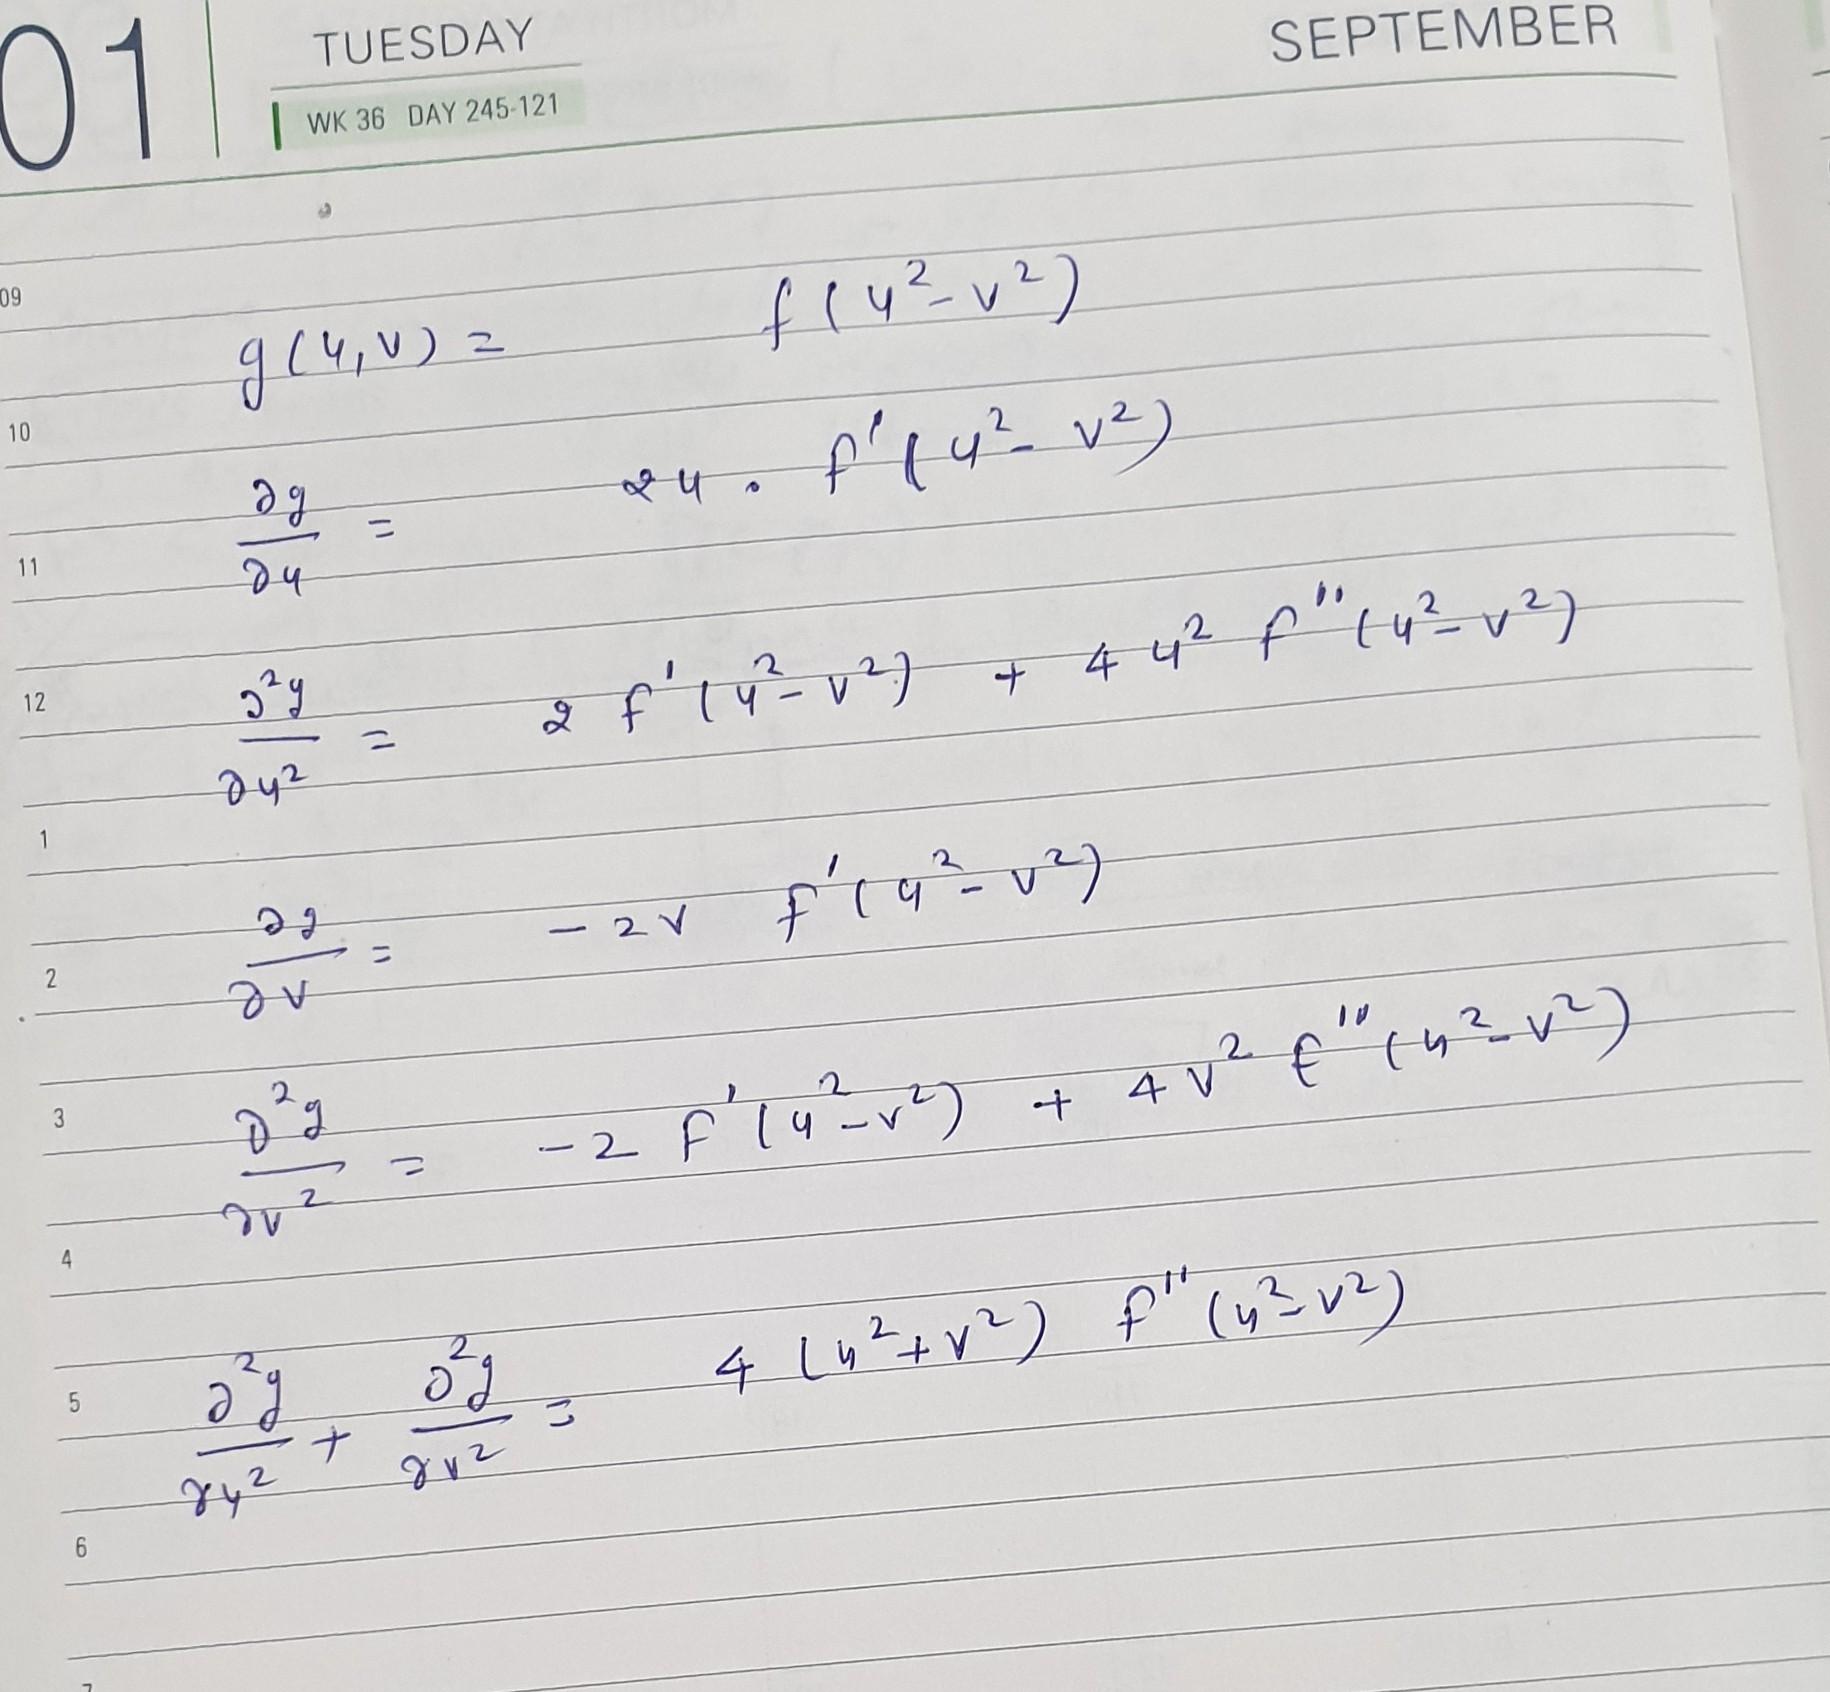 01 TUESDAY SEPTEMBER
WK 36 DAY 245-121
09
g(u,v) = f(u²-v²)
10
∂g/∂u = 2u . f'(u²-v²)
11
12
∂²g/∂u² = 2 f'(u²-v²) + 4u² f''(u²-v²)
1
∂g/∂v = -2v f'(u²-v²)
2
3
∂²g/∂v² = -2 f'(u²-v²) + 4v² f''(u²-v²)
4
5
∂²g/∂u² + ∂²g/∂v² = 4(u²+v²) f''(u²-v²)
6
7